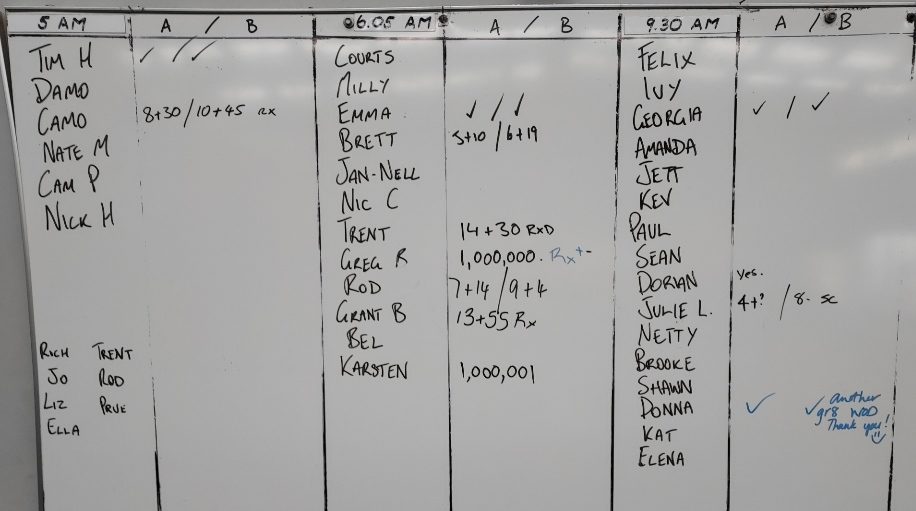 5 AM A / B
TIM H ✓ / ✓
DAMO
CAMO 8+30 / 10+45 RX
NATE M
CAM P
NICK H
RICH TRENT
JO ROD
LIZ PRUE
ELLA
6.05 AM A / B
COURTS
MILLY
EMMA ✓ / ✓
BRETT 5+10 / 6+19
JAN-NELL
NIC C
TRENT 14+30 RXD
GREG R 1,000,000. Rx+-
ROD 7+14 / 9+4
GRANT B 13+55 Rx
BEL
KARSTEN 1,000,001
9.30 AM A / B
FELIX
IVY
GEORGIA ✓ / ✓
AMANDA
JETT
KEV
PAUL
SEAN
DORIAN yes.
JULIE L. 4+? / 8- SC
NETTY
BROOKE
SHAWN
DONNA ✓ ✓ another
gr8 WOD
Thank you!
KAT
ELENA